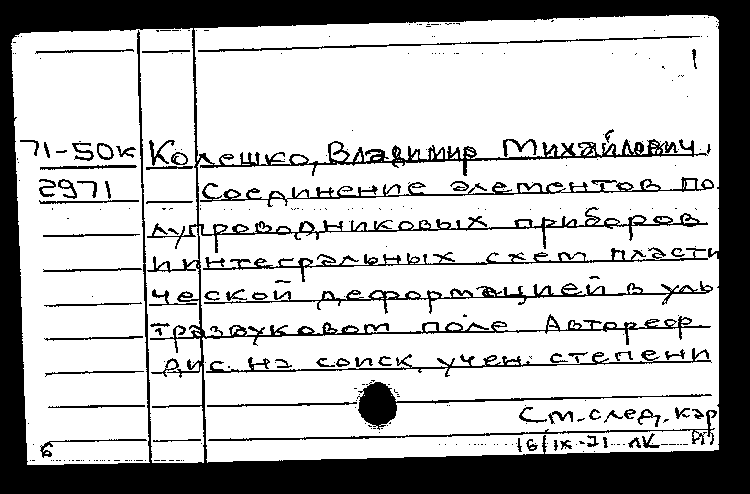 1
71-50к Колешко, Владимир Михайлович.
2971 Соединение элементов по
лупроводниковых приборов
и интегральных схем пласти
ческой деформацией в уль
тразвуковом поле. Автореф.
дис. на соиск. учен. степени
См. след. кар
6 16/IX-71 лк